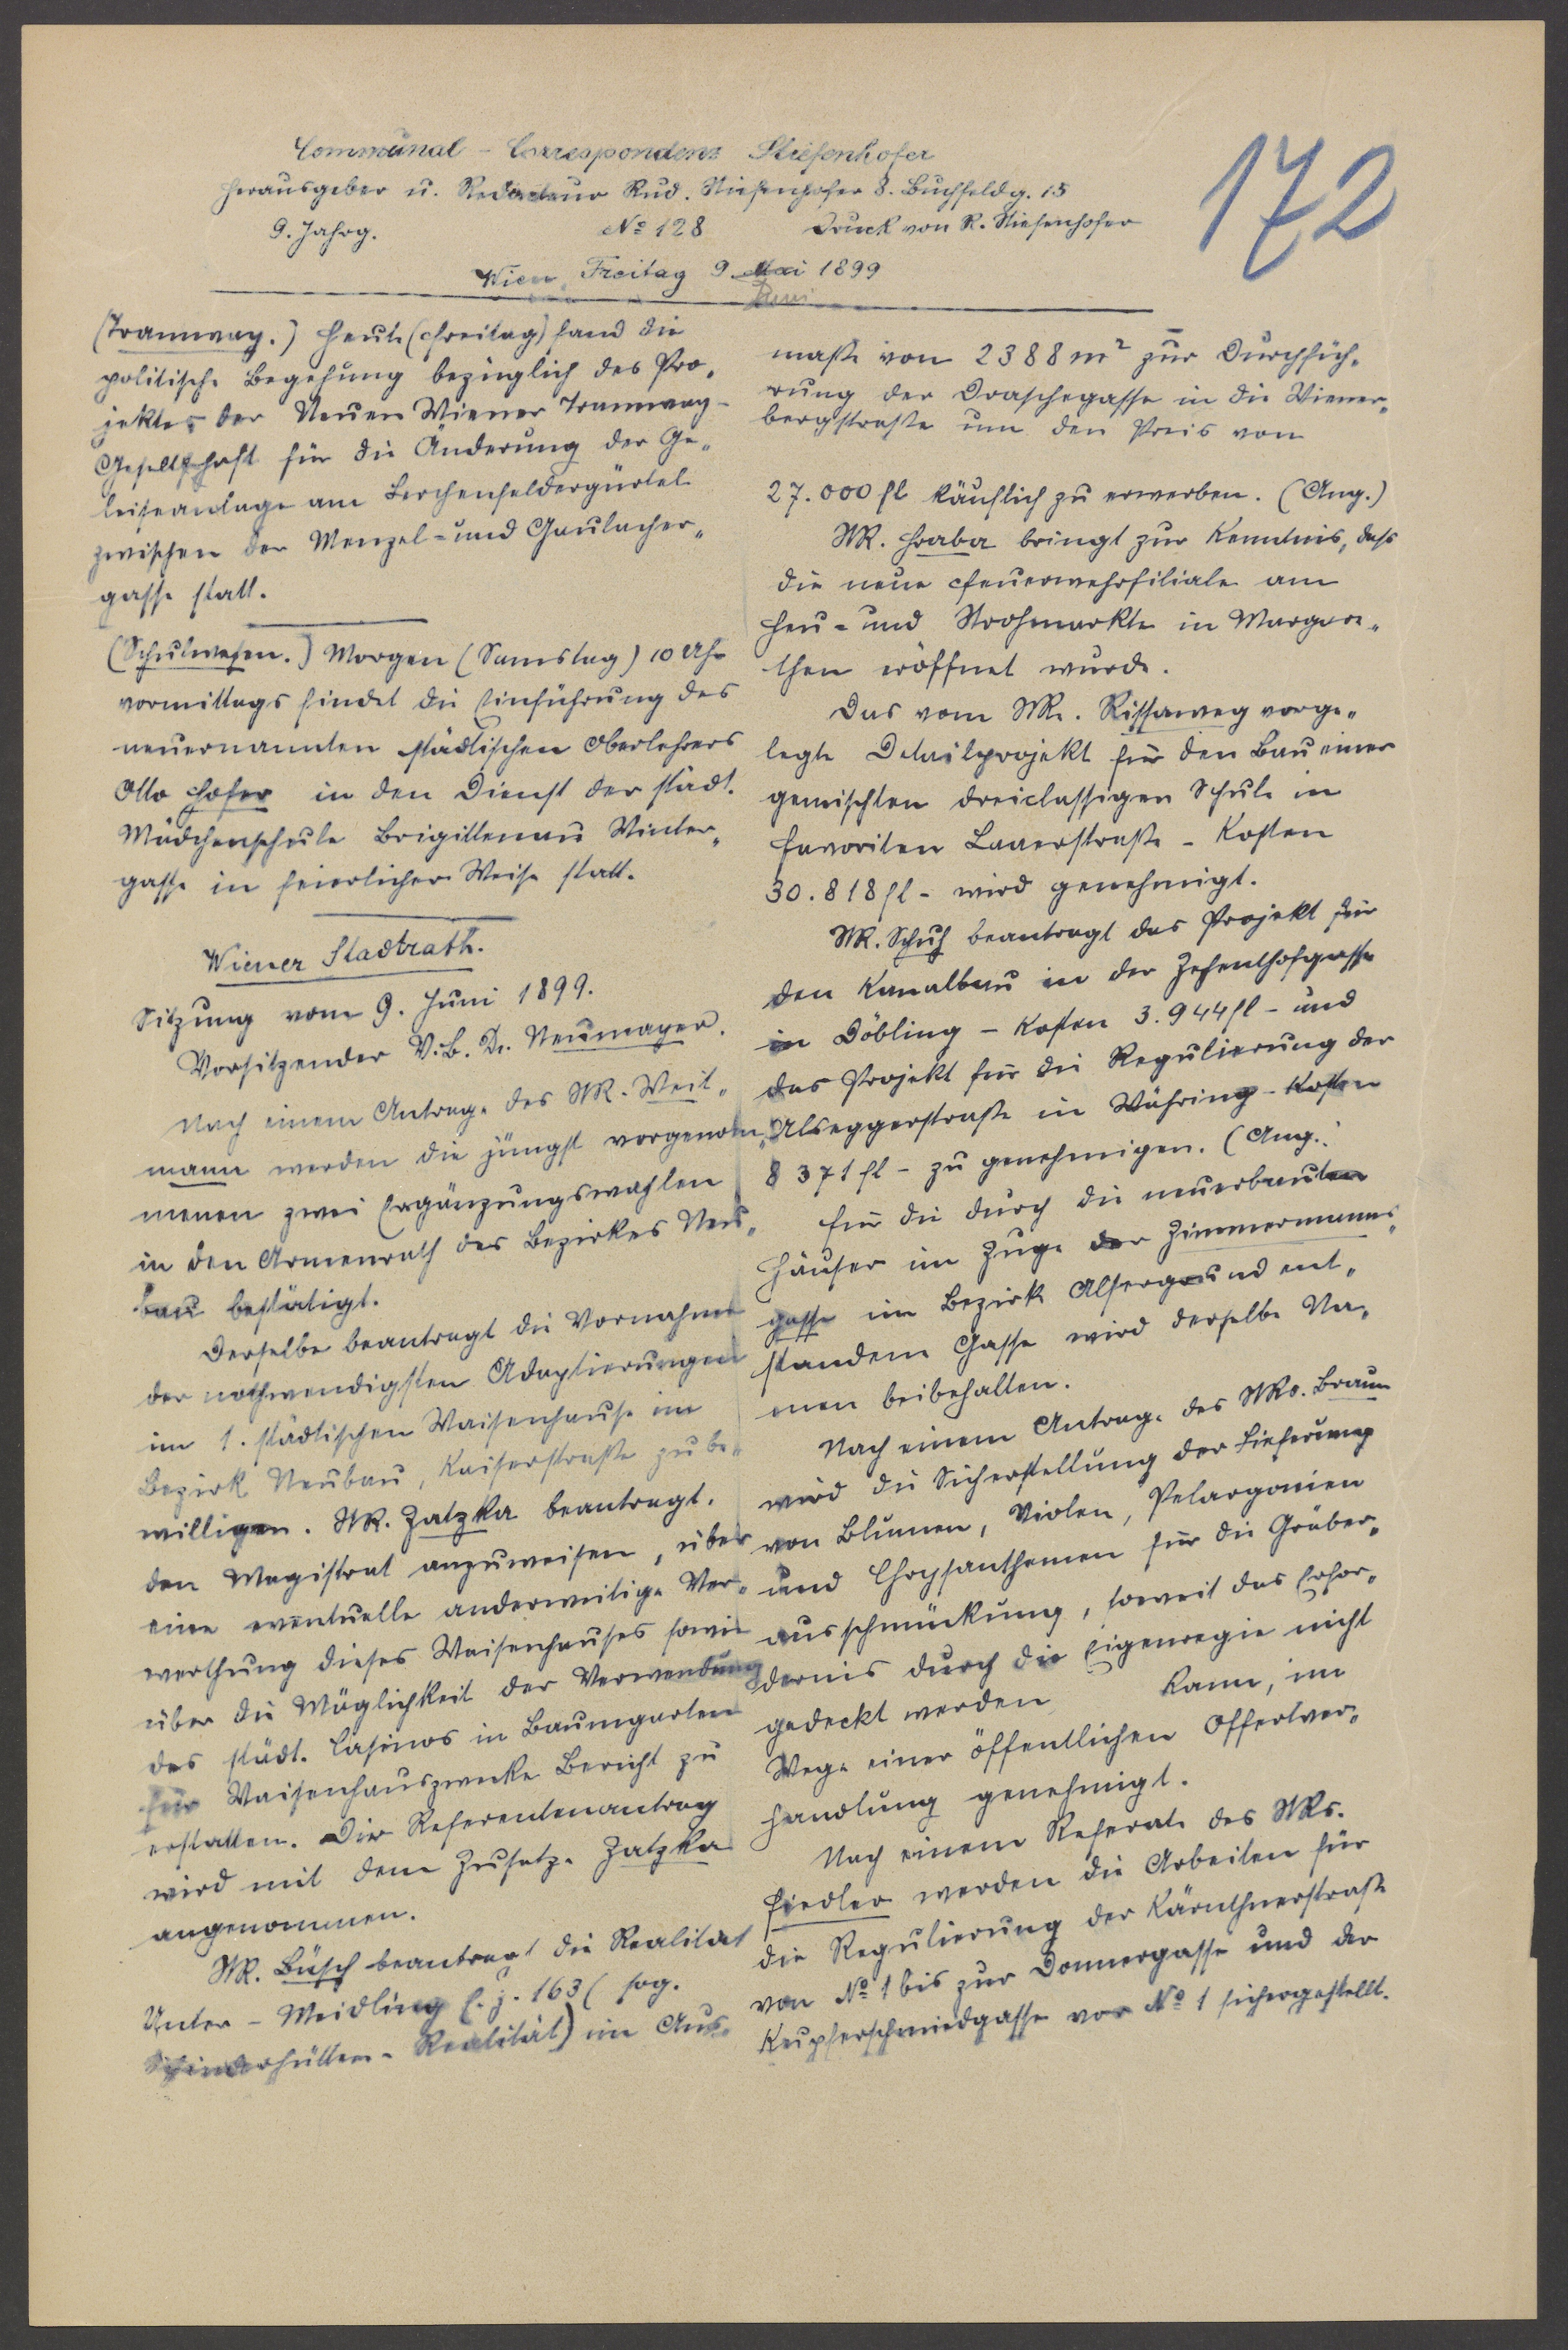 172
Communal-Correspondenz Stiefenhofer
Herausgeber u. Redacteur Rud. Stiefenhofer 8. Buchfeldg. 15
9. Jahrg. No 128 Druck von R. Stiefenhofer
Wien, Freitag 9. Mai 1899
Juni
(Tramway.) Heute (Freitag) fand die
politische Begehung bezüglich des Pro-
jektes der Neuen Wiener Tramway-
Gesellschaft für die Änderung der Ge-
leiseanlage am Lerchenfeldergürtel
zwischen der Menzel- und Gaulacher-
gasse statt.
(Schulwesen.) Morgen (Samstag) 10 Uhr
vormittags findet die Einführung des
neuernannten städtischen Oberlehrers
Otto Hofer in den Dienst der städt.
Mädchenschule Brigittenau Winter-
gasse in feierlicher Weise statt.
Wiener Stadtrath.
Sitzung vom 9. Juni 1899.
Vorsitzender V.B. Dr. Neumayer.
Nach einem Antrage des StR. Weit-
mann werden die jüngst vorgenom-
menen zwei Ergänzungswahlen
in den Armenrath des Bezirkes Neu-
bau bestätigt.
Derselbe beantragt die Vornahme
der nothwendigsten Adaptierungen
im 1. städtischen Waisenhause im
Bezirk Neubau, Kaiserstraße zu be-
willigen. StR. Zatzka beantragt,
den Magistrat anzuweisen, über
eine eventuelle anderweitige Ver-
werthung dieses Waisenhauses sowie
über die Möglichkeit der Verwendung
des städt. Casinos in Baumgarten
für Waisenhauszwecke Bericht zu
erstatten. Der Referentenantrag
wird mit dem Zusatze Zatzka
angenommen.
StR. Büsch beantragt die Realität
Unter-Meidling E.Z. 163 (sog.
Schinderhütten-Realität) im Aus-
maße von 2388 m² zur Durchfüh-
rung der Draschegasse in die Wiener-
bergstraße um den Preis von
27.000 fl käuflich zu erwerben. (Ang.)
StR. Hraba bringt zur Kenntnis, dass
die neue Feuerwehrfiliale am
Heu- und Strohmarkte in Margare-
then eröffnet wurde.
Das vom StR. Rissaweg vorge-
legte Detailprojekt für den Bau einer
gemischten dreiclassigen Schule in
Favoriten Laaerstraße - Kosten
30.818 fl - wird genehmigt.
StR. Schuh beantragt das Projekt für
den Kanalbau in der Zehenthofgasse
in Döbling - Kosten 3.944 fl - und
das Projekt für die Regulierung der
Alseggerstraße in Währing - Kosten
8371 fl - zu genehmigen. (Ang.)
Für die durch die neuerbauten
Häuser im Zuge der Zimmermanns-
gasse im Bezirk Alsergrund ent-
standene Gasse wird derselbe Na-
men beibehalten.
Nach einem Antrage des StRs. Braun
wird die Sicherstellung der Lieferung
von Blumen, Violen, Pelargonien
und Chrysanthemen für die Gräber-
ausschmückung, soweit das Erfor-
dernis durch die Eigenregie nicht
gedeckt werden kann, im
Wege einer öffentlichen Offertver-
handlung genehmigt.
Nach einem Referate des StRs.
Fiedler werden die Arbeiten für
die Regulierung der Kärnthnerstraße
von No 1 bis zur Donnergasse und der
Kupferschmiedgasse vor No 1 sichergestellt.